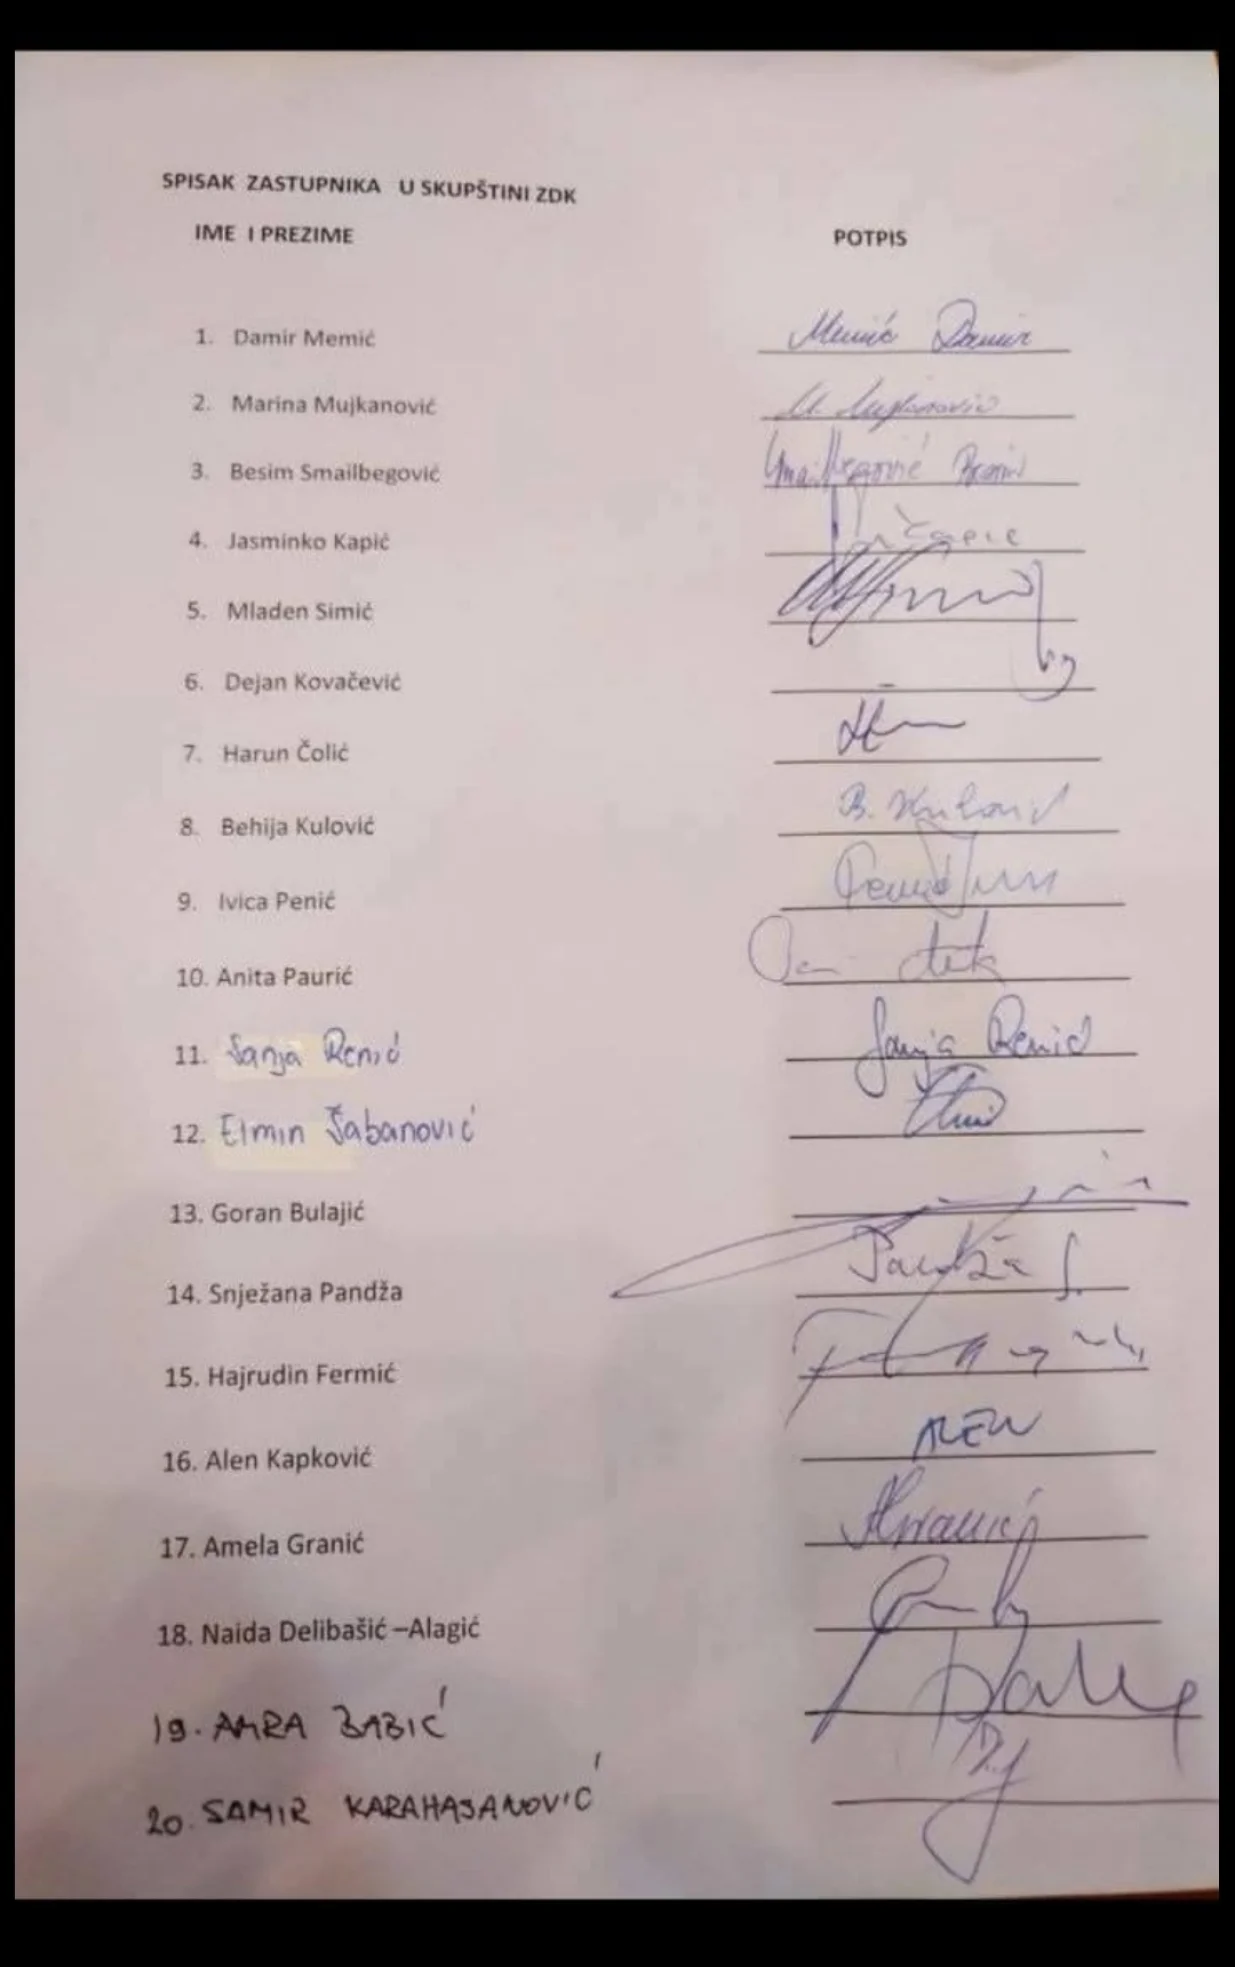 SPISAK ZASTUPNIKA U SKUPŠTINI ZDK
IME I PREZIME POTPIS
1. Damir Memić Memić Damir
2. Marina Mujkanović M. Mujkanović
3. Besim Smailbegović Smailbegović Besim
4. Jasminko Kapić
5. Mladen Simić
6. Dejan Kovačević
7. Harun Čolić
8. Behija Kulović B. Kulović
9. Ivica Penić Penić
10. Anita Paurić
11. Sanja Renić Sanja Renić
12. Elmin Šabanović
13. Goran Bulajić
14. Snježana Pandža Pandža S.
15. Hajrudin Fermić
16. Alen Kapković ALEN
17. Amela Granić AGranić
18. Naida Delibašić –Alagić
19. AMRA BABIĆ
20. SAMIR KARAHASANOVIĆ